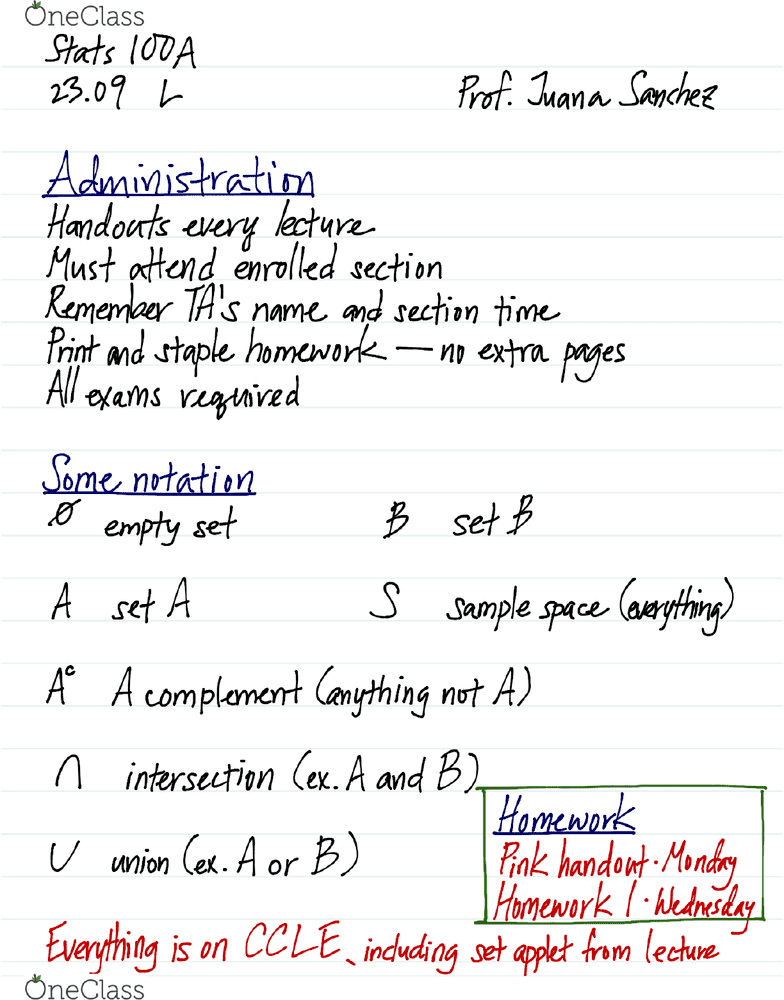 OneClass
Stats 100A
23.09 L Prof. Juana Sanchez
Administration
Handouts every lecture
Must attend enrolled section
Remember TA's name and section time
Print and staple homework — no extra pages
All exams required
Some notation
∅ empty set B set B
A set A S sample space (everything)
Aᶜ A complement (anything not A)
∩ intersection (ex. A and B)
∪ union (ex. A or B)
Homework
Pink handout · Monday
Homework 1 · Wednesday
Everything is on CCLE, including set applet from lecture
OneClass